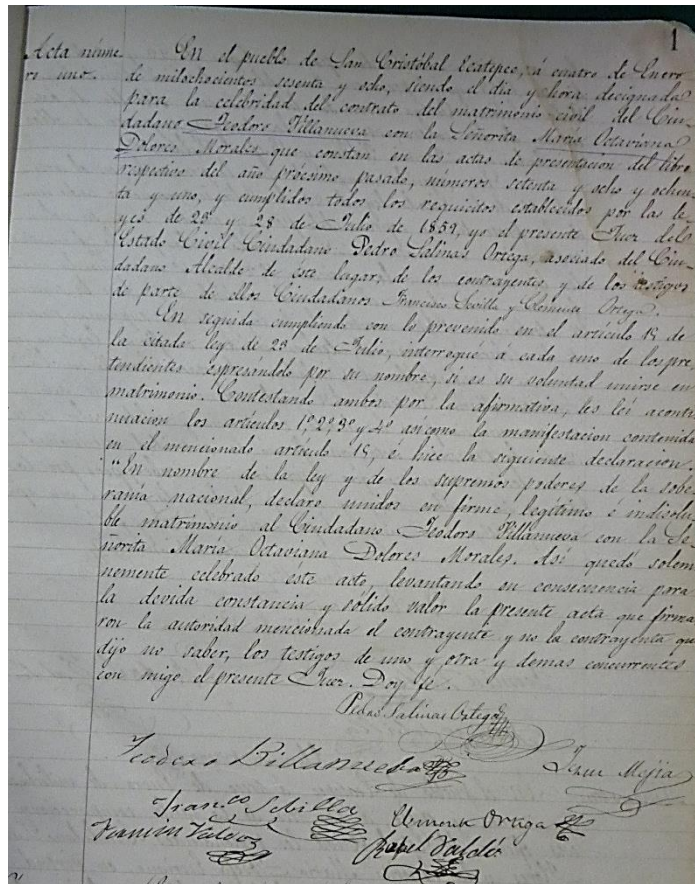 1
Acta núme-
ro uno.
En el pueblo de San Cristóbal Ecatepec, á cuatro de Enero
de milochocientos sesenta y ocho, siendo el dia y hora decignada
para la celebridad del contrato del matrimonio civil del Ciu-
dadano Teodoro Villanueva con la Señorita María Octaviana
Dolores Morales que constan en las actas de presentacion del libro
respectivo del año procsimo pasado, números setenta y ocho y ochen-
ta y uno, y cumplidos todos los requicitos establecidos por las le-
yes de 23 y 28 de Julio de 1859, yo el presente Juez del
Estado Civil Ciudadano Pedro Salinas Ortega, asociado del Ciu-
dadano Alcalde de este lugar, de los contrayentes, y de los testigos
de parte de ellos Ciudadanos Francisco Sevilla y Clemente Ortega.
En seguida cumpliendo con lo prevenido en el artículo 15 de
la citada ley de 23 de Julio, interrogué á cada uno de los pre-
tendientes espresandolo por su nombre, si es su voluntad unirse en
matrimonio. Contestando ambos por la afirmativa, les lei aconti-
nuacion los artículos 1º, 2º, 3º y 4º asi como la manifestacion contenida
en el mencionado artículo 15, é hice la siguiente declaracion:
"En nombre de la ley y de los supremos poderes de la sobe-
ranía nacional, declaro unidos en firme, legítimo é indisolu-
ble matrimonio al Ciudadano Teodoro Villanueva con la Se-
ñorita María Octaviana Dolores Morales. Así quedó solem-
nemente celebrado éste acto, levantando en consecuencia para
la devida constancia y sólido valor la presente acta que firma-
ron la autoridad mencionada el contrayente y no la contrayenta que
dijo no saber, los testigos de uno y otra y demas concurrentes
con migo el presente Juez. Doy fé.
Pedro Salinas Ortega
Teodoro Billanueba
Mejia
Franco Sebilla
Clemente Ortega
Valdez
Rafel Valdés